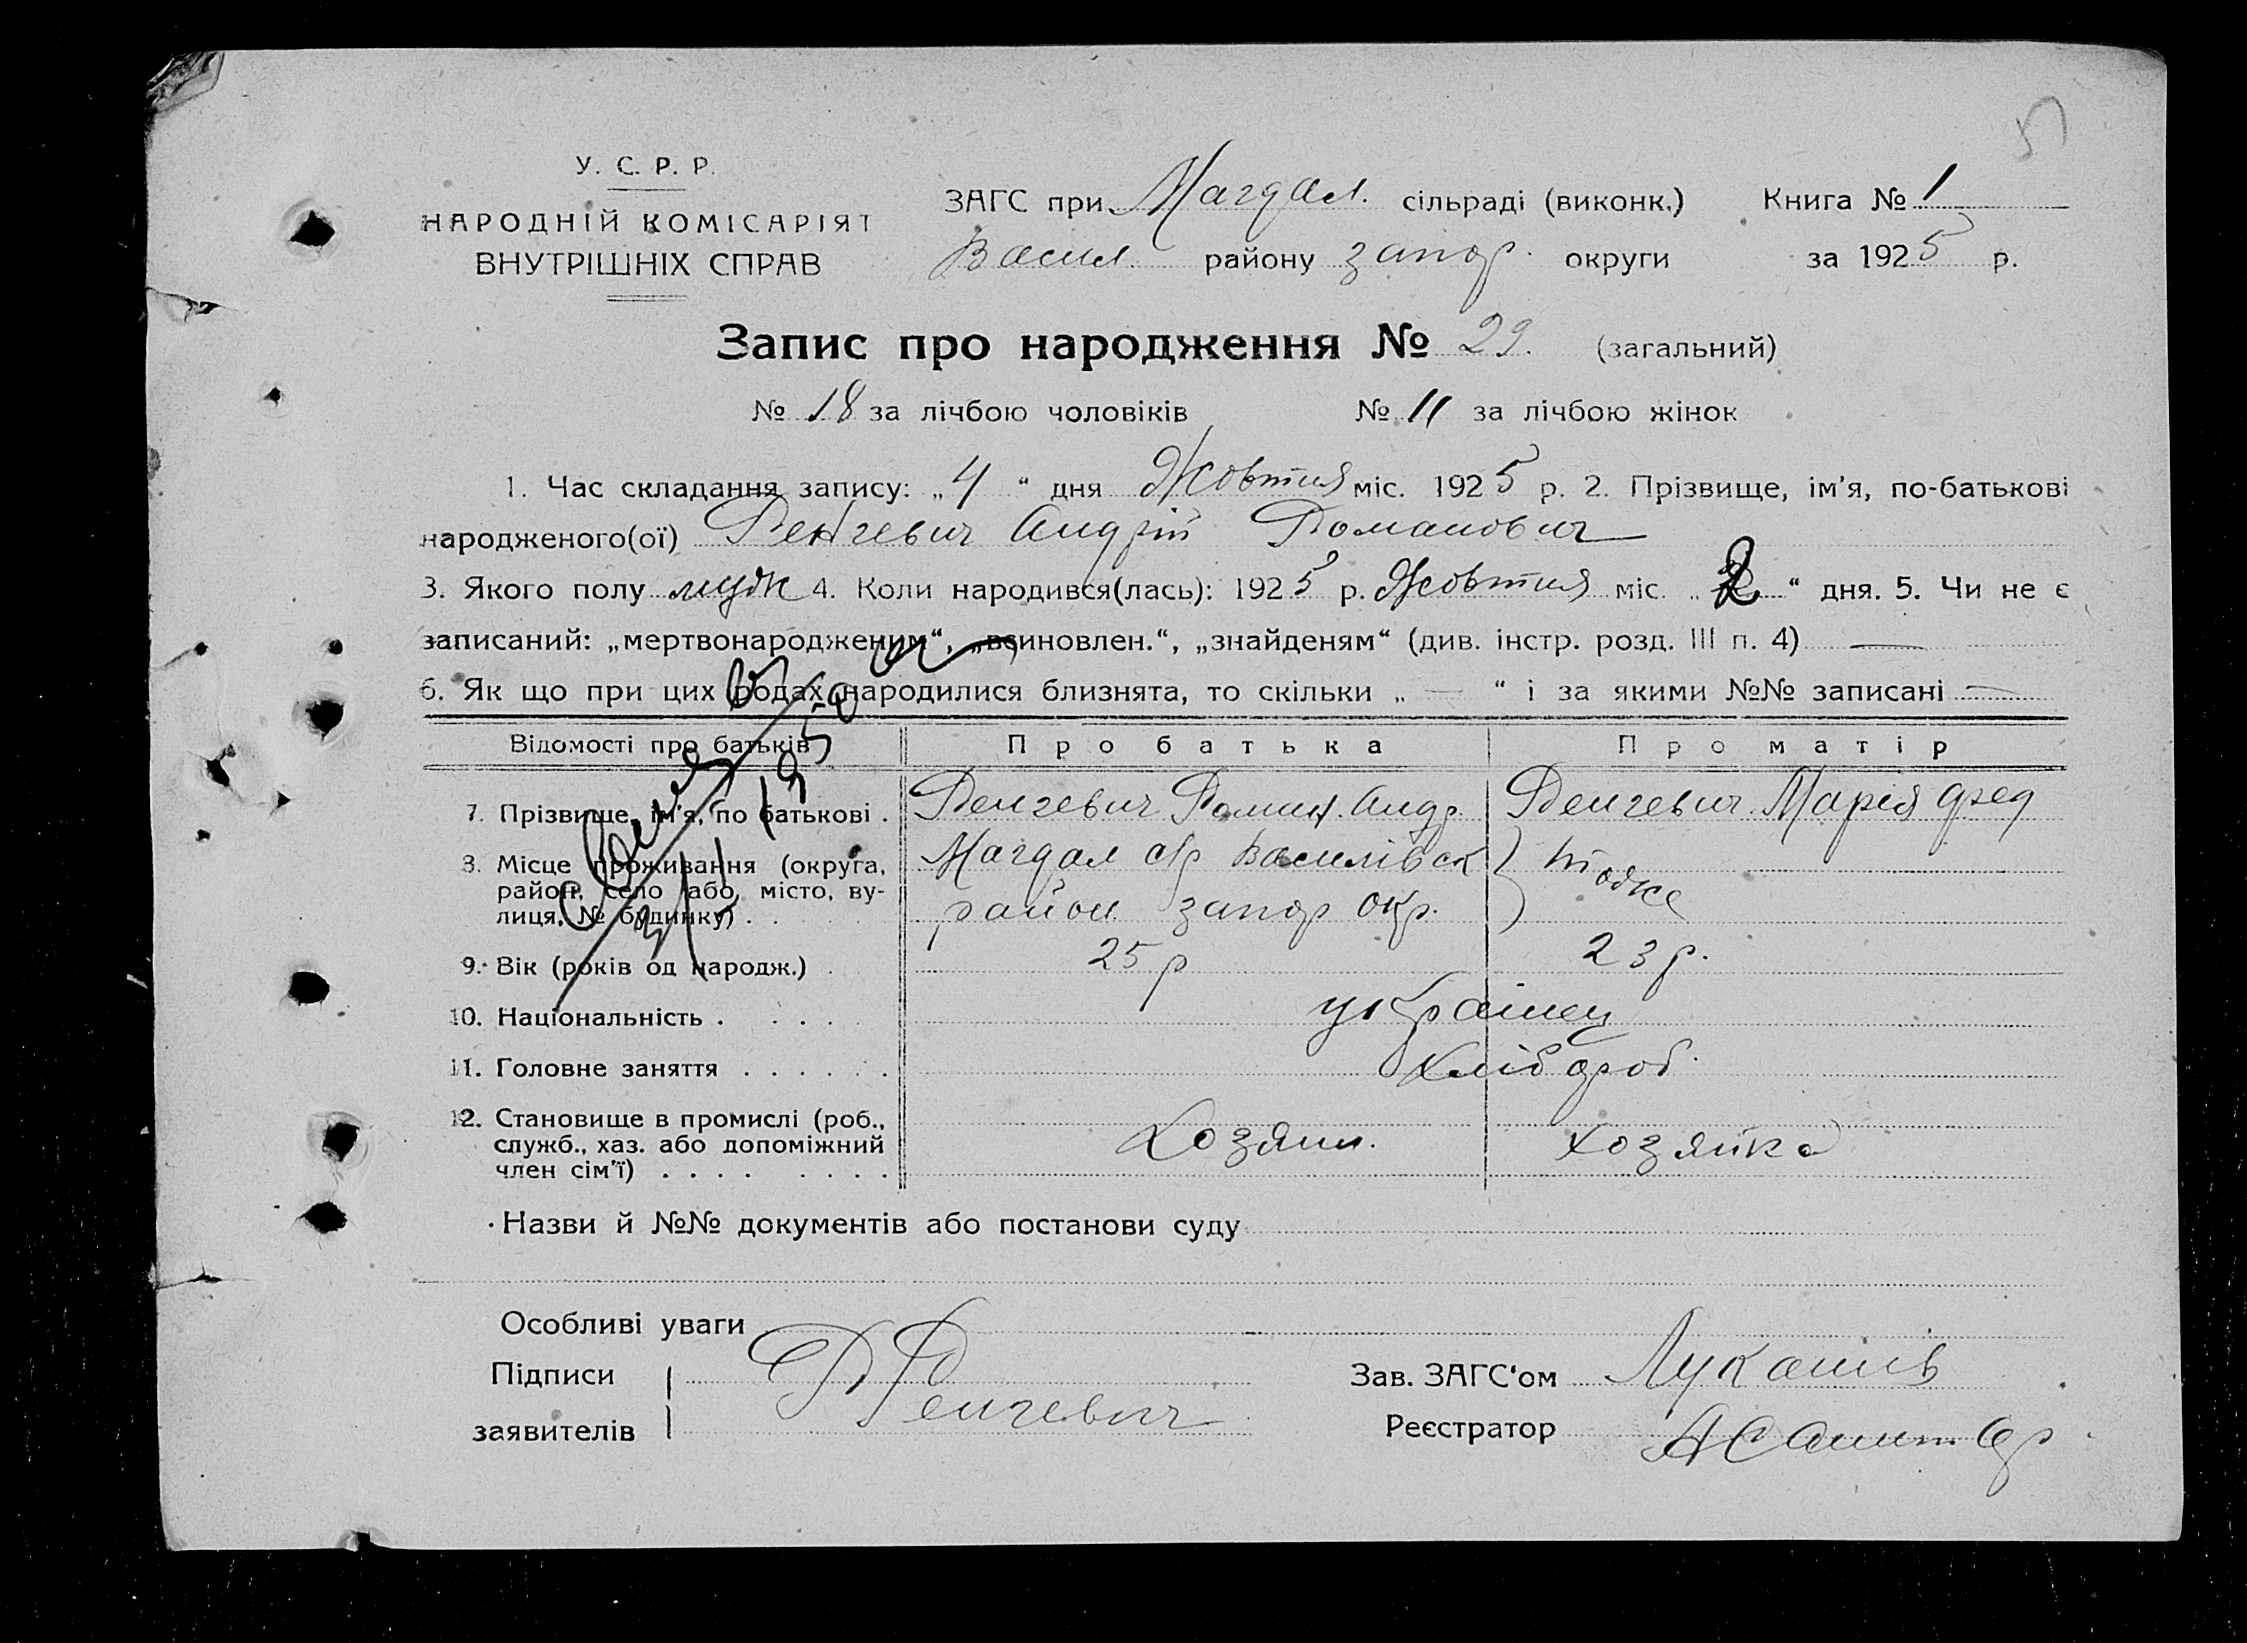 У. С. Р. Р.
НАРОДНІЙ КОМІСАРІЯТ
ВНУТРІШНІХ СПРАВ
ЗАГС при Магдал. сільраді (виконк.) Книга № 1
Васил. району запор. округи за 1925 р.
Запис про народження № 29. (загальний)
№ 18 за лічбою чоловіків № 11 за лічбою жінок
1. Час складання запису: „4“ дня Жовтня міс. 1925 р. 2. Прізвище, ім'я, по-батькові
народженого(ої) Венгевич Андрій Романович
3. Якого полу муж 4. Коли народився(лась): 1925 р. Жовтня міс. „2“ дня. 5. Чи не є
записаний: „мертвонародженим“, „всиновлен.“, „знайденям“ (див. інстр. розд. III п. 4) —
6. Як що при цих родах народилися близнята, то скільки „ — “ і за якими №№ записані —
Відомості про батьків Про батька Про матір
7. Прізвище, ім'я, по батькові . Ренгевич Роман. Андр. Ренгевич Марія Фед
8. Місце проживання (округа, район, село або місто, вулиця, № будинку) . . Магдал с/р Василівск
район запор окр. тоже
9. Вік (років од народж.) . 25 р 23 р.
10. Національність . . . . украінец
11. Головне заняття . . . . . . Хлібороб.
12. Становище в промислі (роб.,
служб., хаз. або допоміжний
член сім'ї) . . . . . . . . Хозяин. хозяйка
Назви й №№ документів або постанови суду
Особливі уваги
Підписи
заявителів Р Ренгевич
Зав. ЗАГС'ом Лукашів
Реєстратор